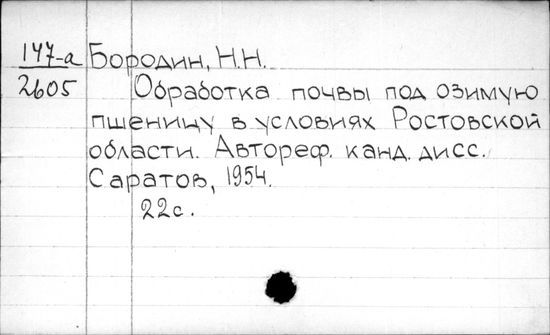 147-а Бородин, Н.Н.
2605 Обработка почвы под озимую
пшеницу в условиях Ростовской
области. Автореф. канд. дисс.
Саратов, 1954.
22с.